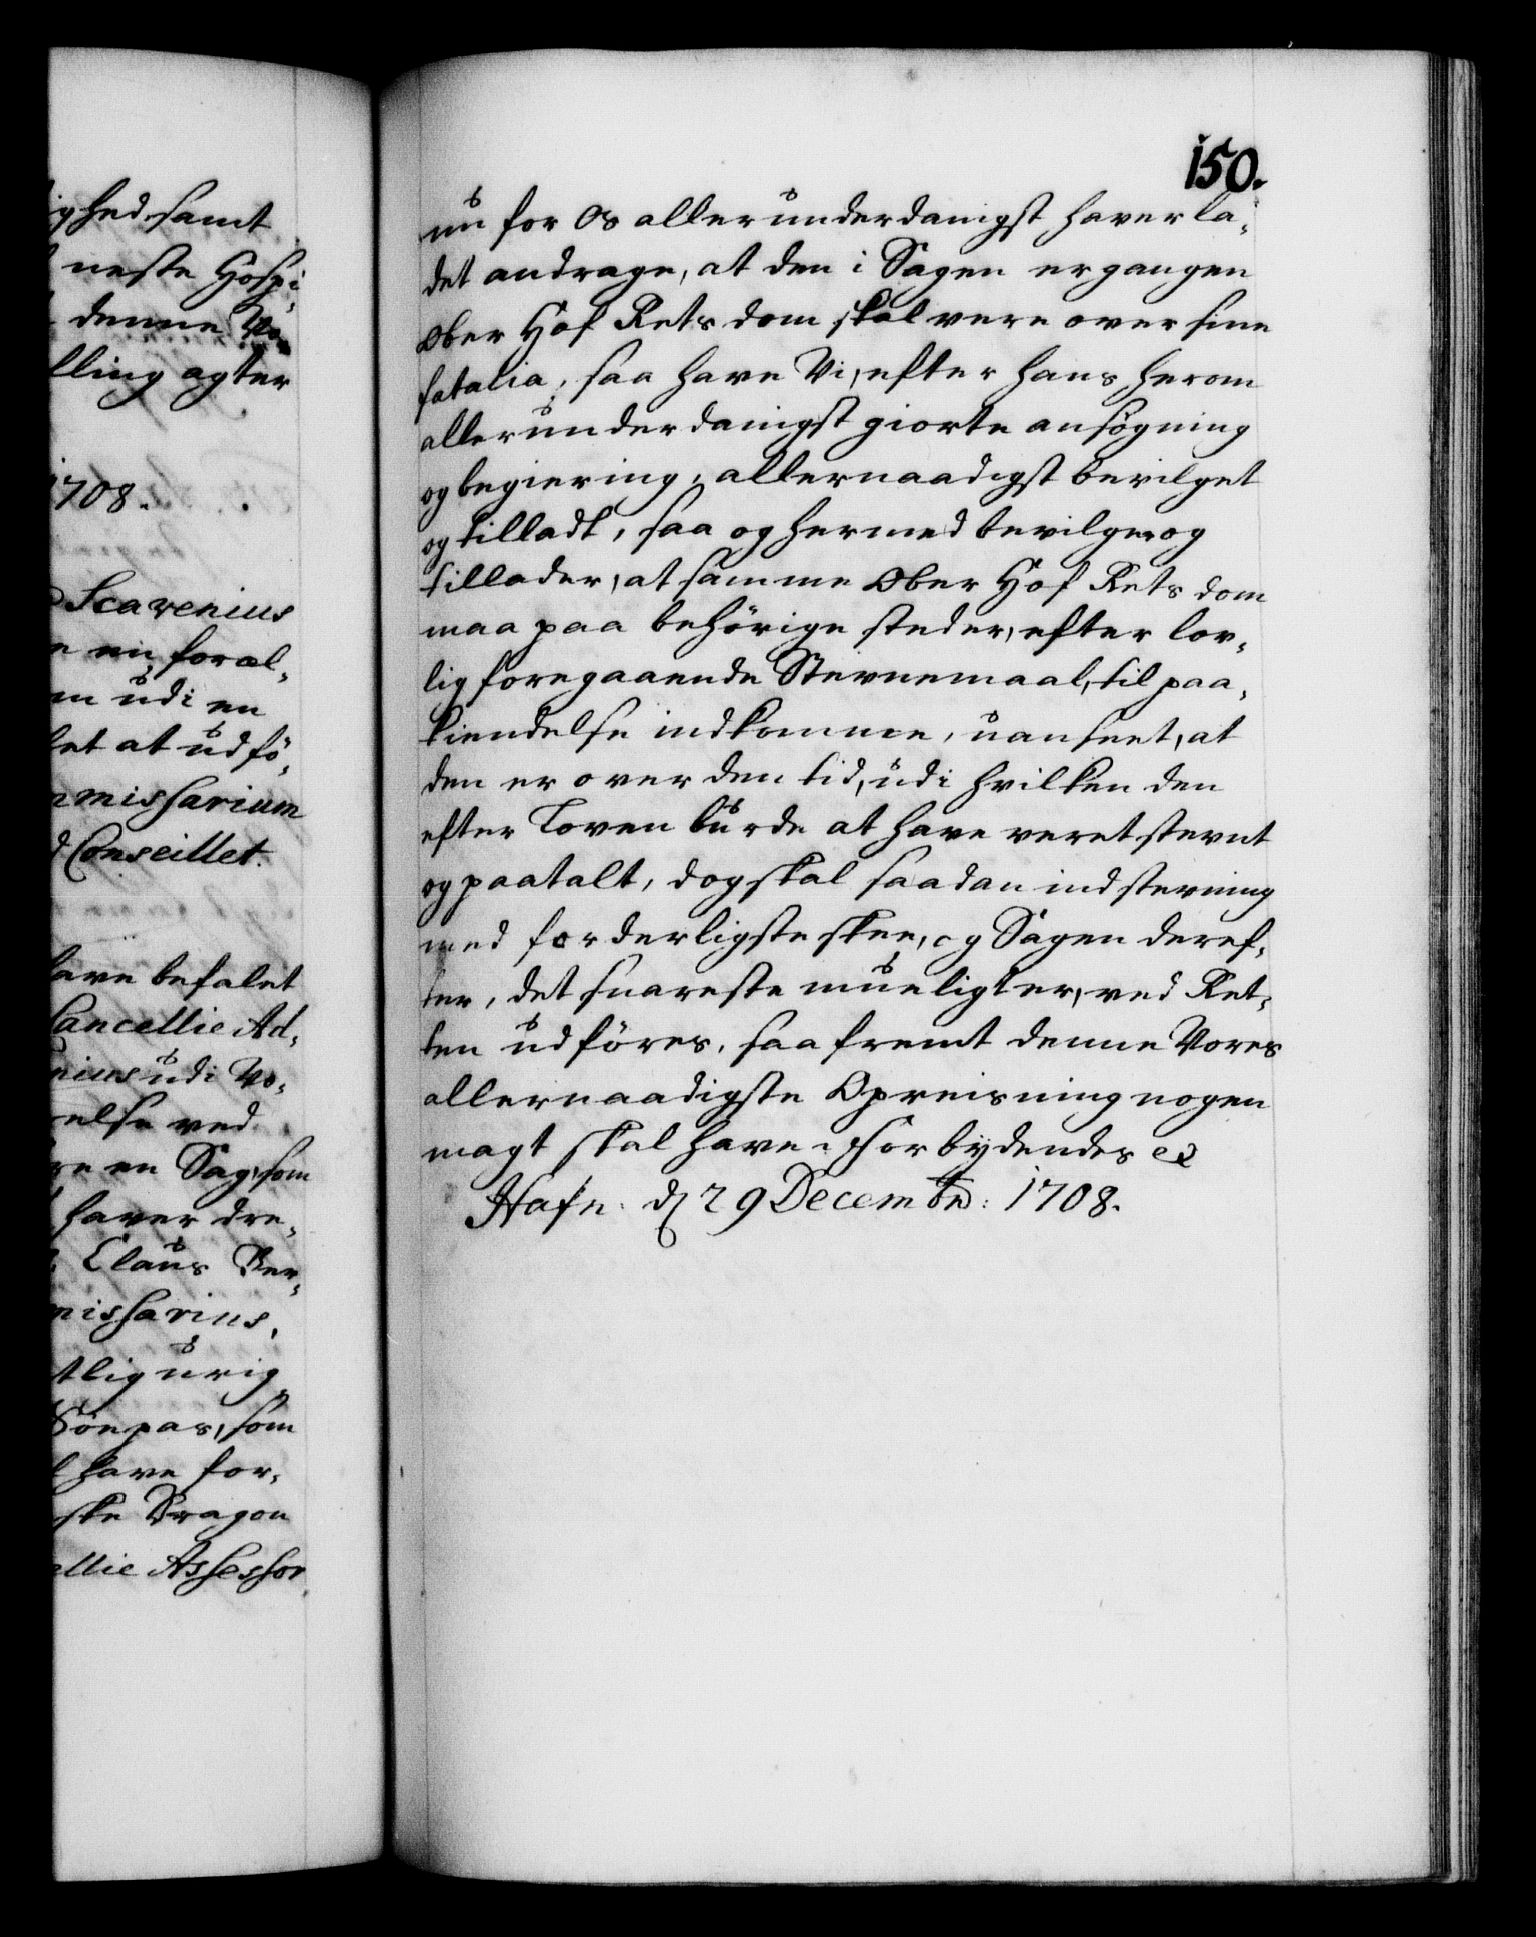 ighed samt
neste Hospi¸
denne Vo¸
lling agter
1708.
Scavenius
en foræl¸
udi en
let at udfö¸
mmissarium
d Conseillet.
have befalet
Cancellie Ad¸
nius udi Vo¸
else ved
re en Sag, som
haver dre¸
Claus Ber¸
missarius,
tlig urig
Sönpas, som
l have for¸
ske Dragon
ellie Assessor
150.
nu for Os allerunderdanigst haver la¸
det andrage, at den i Sagen ergangen
Ober Hof Rets dom skal vere over sine
fatalia, saa have Vi, efter hans herom
allerunderdanigst giorte ansøgning
og begiering, allernaadigst bevilget
og tilladt, saa og hermed bevilger og
tillader, at samme Ober Hof Rets dom
maa paa behörige steder, efter lov¸
lig foregaaende Stevnemaal, til paa¸
kiendelse indkomme, uanseet, at
den er over den tid, udi hvilken den
efter Loven burde at have veret stevnt
og paatalt, dog skal saadan indstevning
med forderligste skee, og Sagen deref¸
ter, det snareste mueligt er, ved Ret¸
ten udföres, saafremt denne Vores
allernaadigste Opreisning nogen
magt skal have. Forbydendes ec
Hafn. d 29 Decembr: 1708.